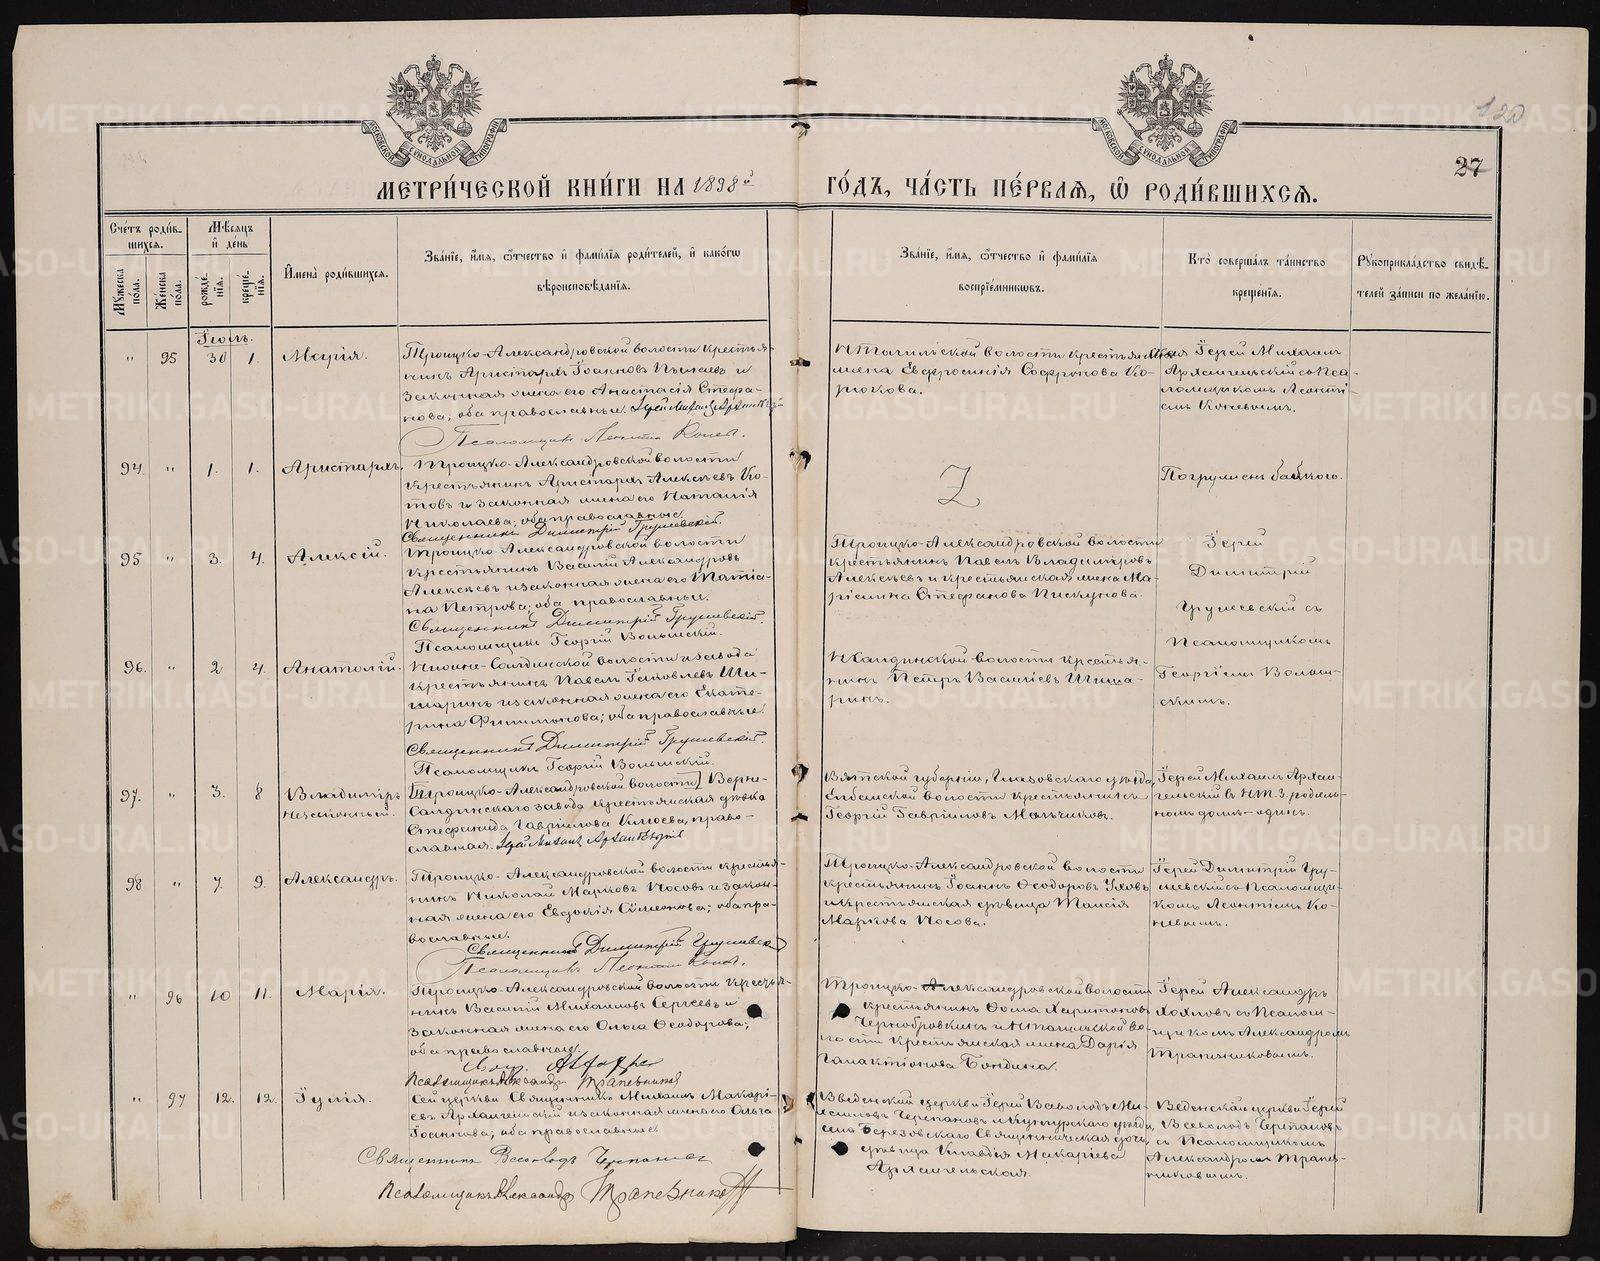 120
27
МЕТРИ́ЧЕСКОЙ КНИ́ГИ НА 1898й ГО́ДЪ, ЧА́СТЬ ПЕ́РВАѦ, Ѽ РОДИ́ВШИХСѦ.
Сче́тъ роди́в-
шихся.
Мѣ́сяцъ
и де́нь
Мꙋ́жеска по́ла.
Же́нска по́ла.
рожде́-
нїя.
креще́-
нїя.
И҆мена̀ роди́вшихся.
Зва́нїе, и҆́мя, ѻ҆́тчество и҆ фами́лїя роди́телей, и҆ како́гѡ
вѣроисповѣ́данїя.
Зва́нїе, и҆́мя, ѻ҆́тчество и҆ фами́лїя
воспрїе́мникѡвъ.
Кто̀ соверша́лъ та́инство
креще́нїя.
Рꙋкоприкла́дство свидѣ́-
телей за́писи по жела́нїю.
" 95 30 1. Марія.
Троицко-Александровской волости крестья-
нинъ Аристархъ Іоанновъ и
законная жена его Анастасія Стефа-
нова; оба православные.
Псаломщикъ Леонтій Коневъ.
Н Тагильской волости крестьянская
жена Евфросинія Софронова Ко-
рюкова.
Іерей Михаилъ
Архангельскій съ Пса-
ломщикомъ Леонті-
емъ Коневымъ.
94. " 1. 1. Аристархъ.
Троицко-Александровской волости
крестьянинъ Аристархъ Алексѣевъ Ко-
товъ и законная жена его Наталія
Николаева; оба православные.
Священникъ Димитрій Грушевскій.
Z
Погруженъ бабкою.
95 " 3. 4. Алексій.
Троицко-Александровской волости
крестьянинъ Василій Александровъ
Алексѣевъ и законная жена его Татіа-
на Петрова; оба православные.
Священникъ Димитрій Грушевскій.
Псаломщикъ Георгій Волынскій.
Троицко-Александровской волости
крестьянинъ Павелъ Владиміровъ
Алексѣевъ и крестьянская жена Ма-
ріанна Стефанова Пискунова.
Іерей
Димитрій
Грушевскій съ
Псаломщикомъ
Георгіемъ Волын-
скимъ.
96. " 2 4. Анатолій.
Нижне-Салдинской волости и завода
крестьянинъ Павелъ Іаковлевъ Ши-
шаринъ и законная жена его Екате-
рина Филимонова; оба православные.
Священникъ Димитрій Грушевскій.
Псаломщикъ Георгій Волынскій.
Н Салдинской волости крестья-
нинъ Петръ Василіевъ Шиша-
ринъ.
97. " 3. 8 Владиміръ
незаконный.
[Троицко-Александровской волости] Верхне-
Салдинскаго завода крестьянская дѣвка
Стефанида Гавриилова Клюева, право-
славная.
Вятской губерніи, Глазовскаго уѣзда,
волости крестьянинъ
Георгій Гавриловъ
Іерей Михаилъ Архан-
гельскій въ Н.Т.З. родиль-
номъ домѣ-одинъ.
98 " 7. 9. Александръ.
Троицко-Александровской волости крестья-
нинъ Николай Марковъ Носовъ и закон-
ная жена его Евдокія Сѵмеонова; оба пра-
вославные.
Священникъ Димитрій Грушевскій
Псаломщикъ Леонтій Коневъ.
Троицко-Александровской волости
крестьянинъ Іоаннъ Ѳеодоровъ Уховъ
и крестьянская дѣвица Таисія
Маркова Носова.
Іерей Димитрій Гру-
шевскій съ Псаломщи-
комъ Леонтіемъ Ко-
невымъ.
" 96 10 11. Марія.
Троицко-Александровской волости крестья-
нинъ Василій Михаиловъ Сергѣевъ и
законная жена его Ольга Ѳеодорова;
оба православные.
Псаломщикъ Александръ Трапезниковъ
Троицко-Александровской волости
крестьянинъ Ѳома Харитоновъ
Чернобровкинъ и Н Тагильской во-
лости крестьянская жена Дарія
Галактіонова Бондина.
Іерей Александръ
Хохловъ съ Псалом-
щикомъ Александромъ
Трапезниковымъ.
" 97 12. 12. Іулія.
Сей церкви Священникъ Михаилъ Макарі-
евъ Архангельскій и законная жена его Ольга
Іоаннова; оба православные.
Священникъ Всеволодъ Черепановъ
Псаломщикъ Александръ Трапезниковъ
Введенской церкви Іерей Всеволодъ
Черепановъ и Кунгурскаго уѣзда,
села Березовскаго Священническая дочь,
дѣвица Клавдія Макаріева
Архангельская.
Введенской церкви Іерей
Всеволодъ Черепановъ
съ Псаломщикомъ
Александромъ Трапез-
никовымъ.
METRIKI.GASO-URAL.RU